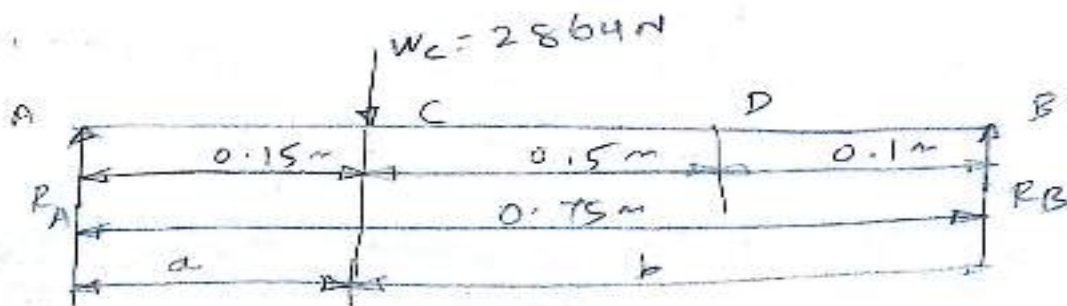 Wc = 2864N
A C D B
0.15m 0.5m 0.1m
RA 0.75m RB
a b